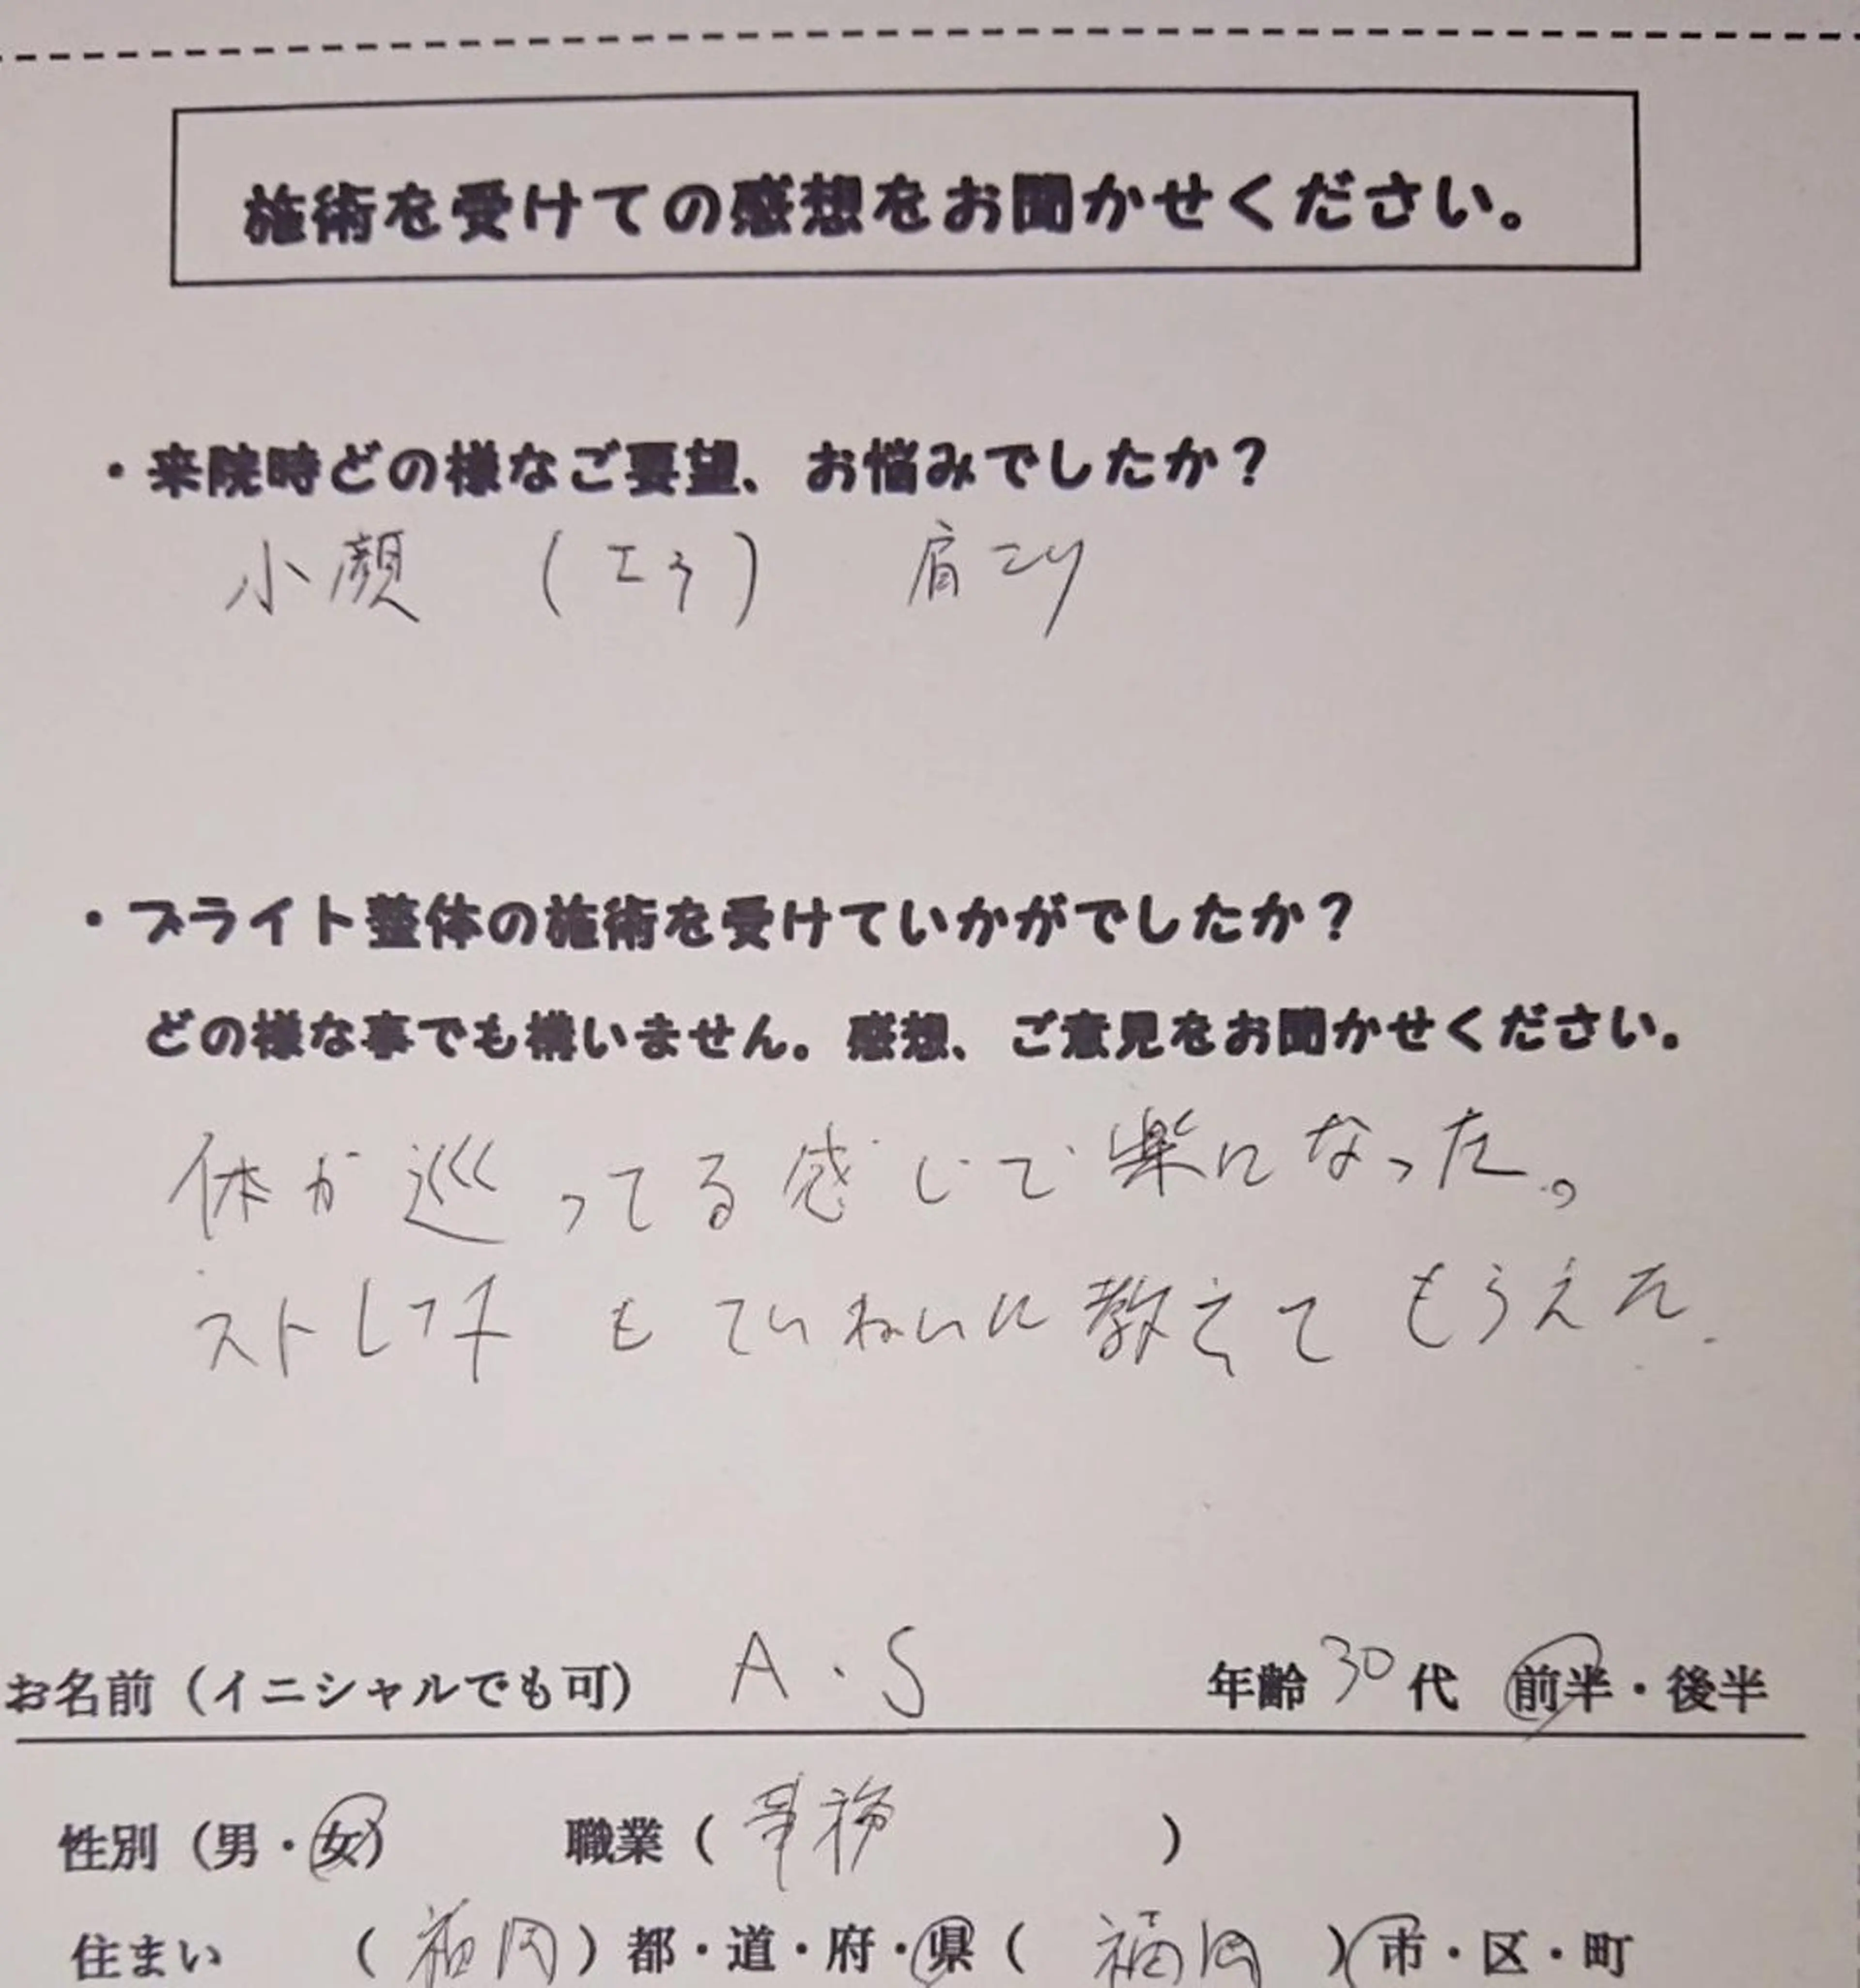 施術を受けての感想をお聞かせください。
・来院時どの様なご要望、お悩みでしたか？
小顔 (エラ) 肩こり
・ブライト整体の施術を受けていかがでしたか？
どの様な事でも構いません。感想、ご意見をお聞かせください。
体が巡ってる感じで楽になった。
ストレッチもていねいに教えてもらえた.
お名前（イニシャルでも可） A・S 年齢 30 代 前半・後半
性別（男・女） 職業（ 事務 ）
住まい （ 福岡 ）都・道・府・県（ 福岡 ）市・区・町